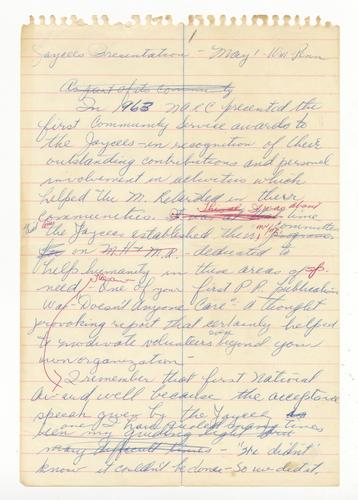 1
Jaycees Presentation - May 1 - Wm. Penn
As part of its community
In 1963 NARC presented the
first Community Service awards to
the Jaycees - in recognition of their
outstanding contributions and personal
involvement in activities which
helped the M. Retarded in their
communities. about time
the Jaycees established their committee
on M.H & M.R. - dedicated to
help humanity in these areas of sp.
need, One of your first P.R. publication
was - "Doesn't Anyone Care" - a thought
provoking report that certainly helped
to motivate volunteers even beyond your
own organization -
I remember that first National
Award well because the acceptance
speech given by the Jaycee
one I have quoted many times
been my guiding light and
many difficult times - "We didn't
know it couldn't be done - So we did it.